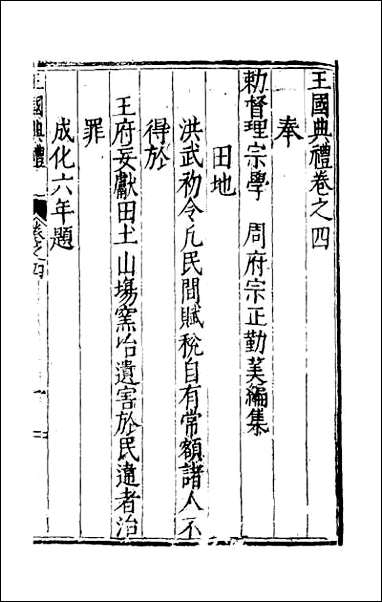 王國典禮卷之四
奉
勅督理宗學 周府宗正勤羙編集
田地
洪武初令凡民間賦稅自有常額諸人不
得於
王府妄獻田土山塲窯冶遺害於民違者治
罪
成化六年題
王國典禮 卷之四 一